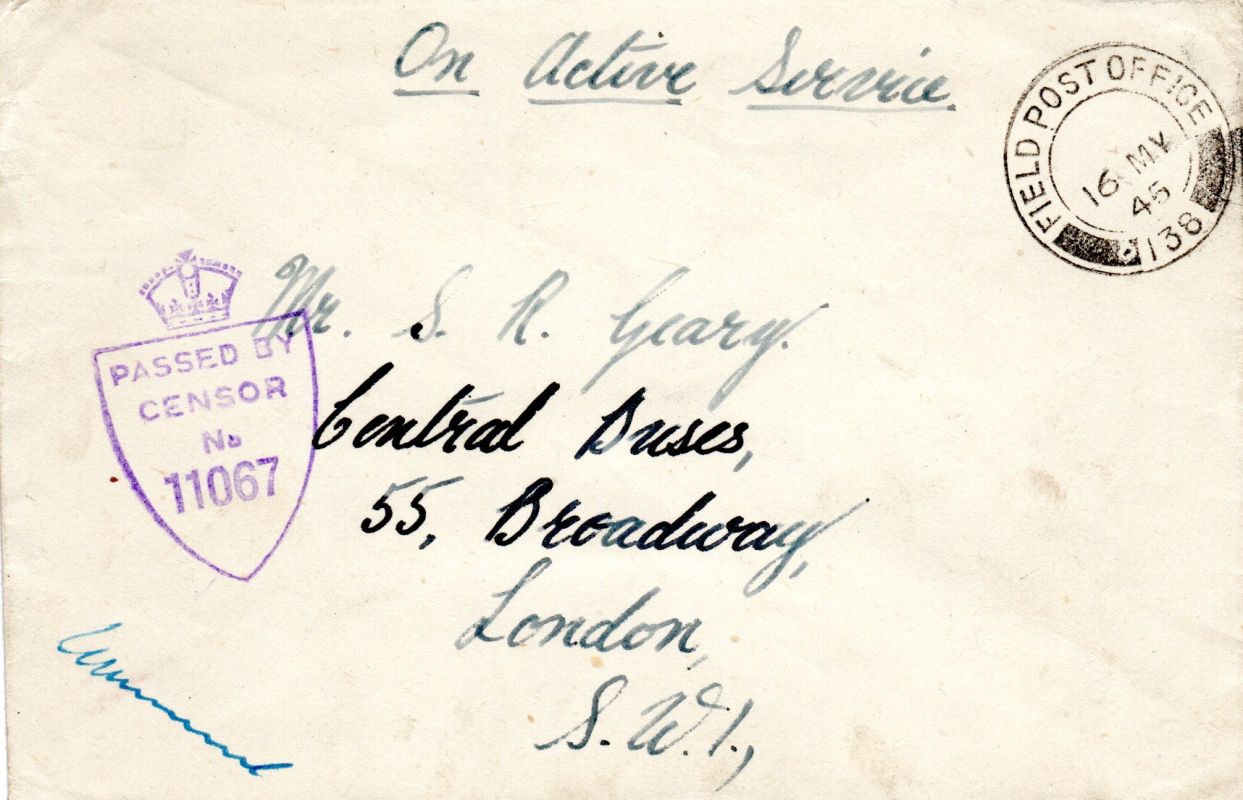 On Active Service.
FIELD POST OFFICE
16 MY
45
138
Mr. S. R. Geary.
PASSED BY
CENSOR
No
11067
Central Buses,
55, Broadway,
London,
S.W.1.,